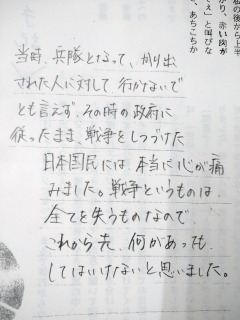 私の後から上半
がり、赤い肉が
てぇ」と叫びな
、あちこちか
当時、兵隊となって、かり出
された人に対して、行かないで
とも言えず、その時の政府に
従ったまま、戦争をしつづけた
日本国民には、本当に心が痛
みました。戦争というものは、
全てを失うものなので、
これから先、何があっても、
してはいけないと思いました。